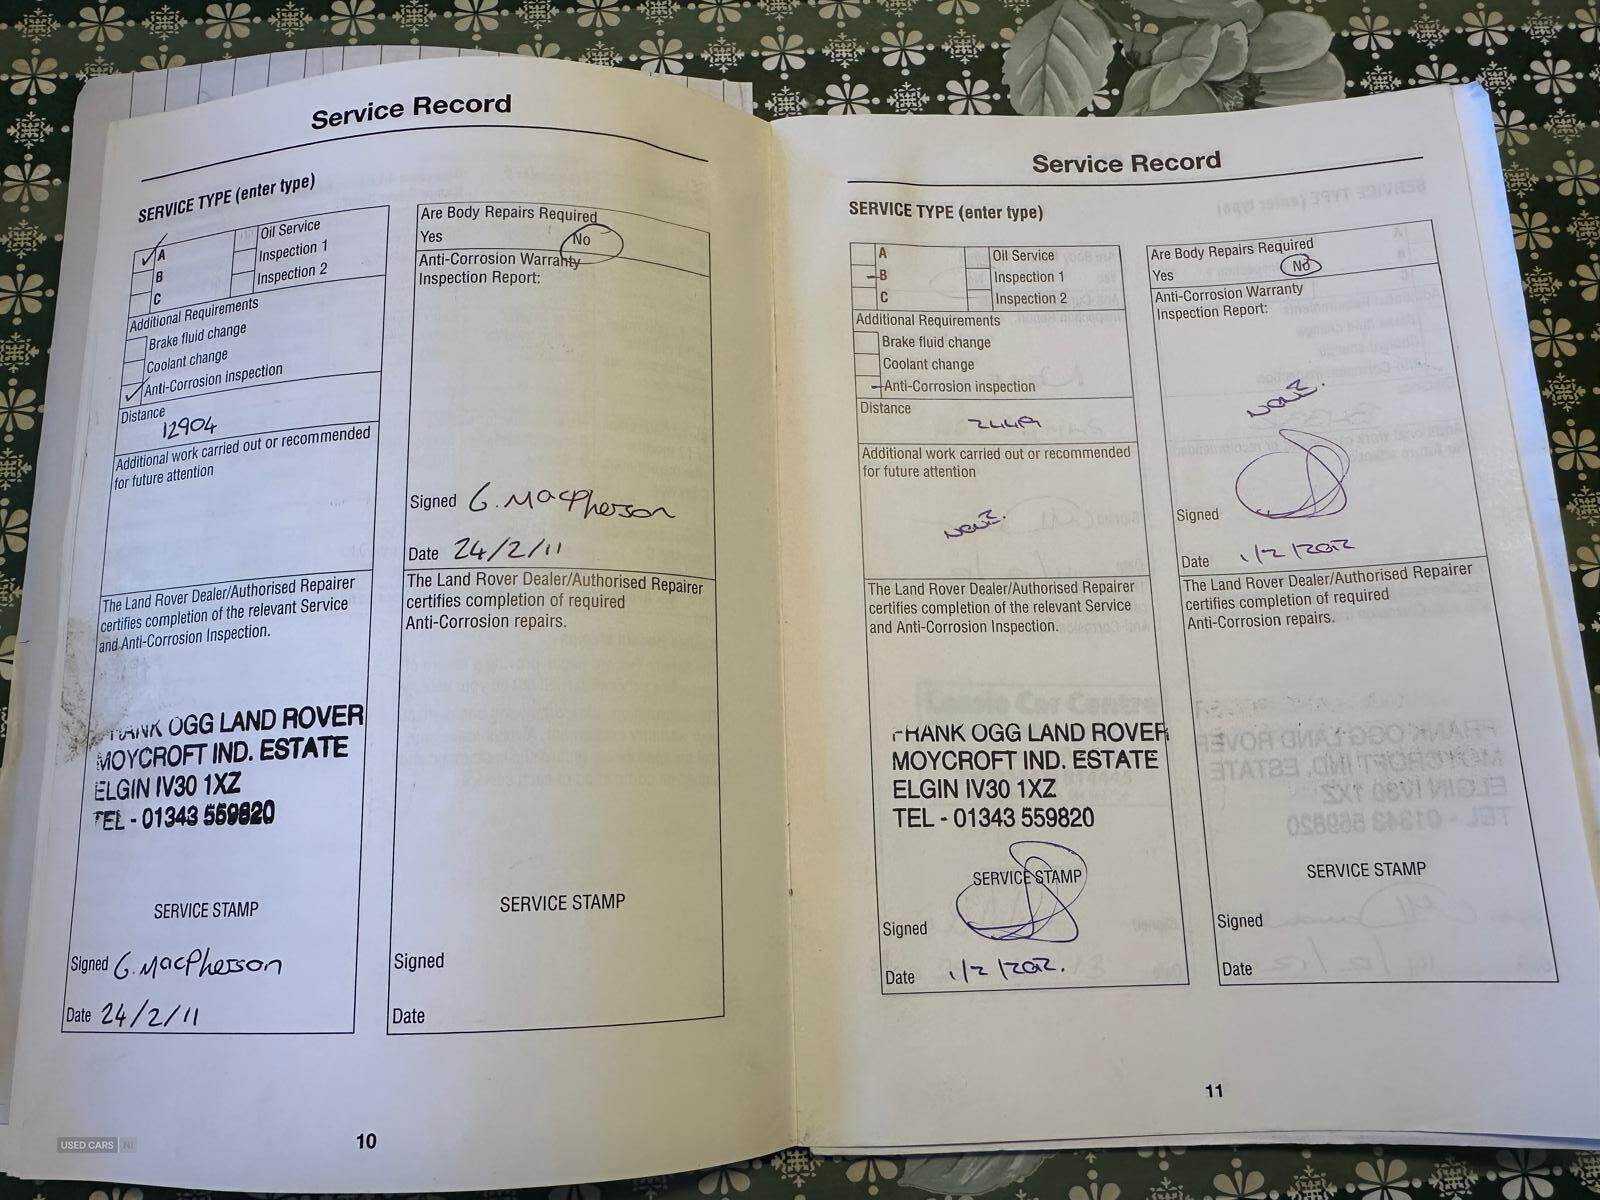 Service Record
SERVICE TYPE (enter type)
A
B
C
Oil Service
Inspection 1
Inspection 2
Additional Requirements
Brake fluid change
Coolant change
Anti-Corrosion inspection
Distance
12904
Additional work carried out or recommended
for future attention
The Land Rover Dealer/Authorised Repairer
certifies completion of the relevant Service
and Anti-Corrosion Inspection.
FRANK OGG LAND ROVER
MOYCROFT IND. ESTATE
ELGIN IV30 1XZ
TEL - 01343 559820
SERVICE STAMP
Signed G. MacPherson
Date 24/2/11
Are Body Repairs Required
Yes No
Anti-Corrosion Warranty
Inspection Report:
Signed G. MacPherson
Date 24/2/11
The Land Rover Dealer/Authorised Repairer
certifies completion of required
Anti-Corrosion repairs.
SERVICE STAMP
Signed
Date
10
Service Record
SERVICE TYPE (enter type)
A
B
C
Oil Service
Inspection 1
Inspection 2
Additional Requirements
Brake fluid change
Coolant change
Anti-Corrosion inspection
Distance
Additional work carried out or recommended
for future attention
NONE.
The Land Rover Dealer/Authorised Repairer
certifies completion of the relevant Service
and Anti-Corrosion Inspection.
FRANK OGG LAND ROVER
MOYCROFT IND. ESTATE
ELGIN IV30 1XZ
TEL - 01343 559820
SERVICE STAMP
Signed
Date 1/2/2012.
Are Body Repairs Required
Yes No
Anti-Corrosion Warranty
Inspection Report:
NONE.
Signed
Date 1/2/2012
The Land Rover Dealer/Authorised Repairer
certifies completion of required
Anti-Corrosion repairs.
SERVICE STAMP
Signed
Date
11
USED CARS NI